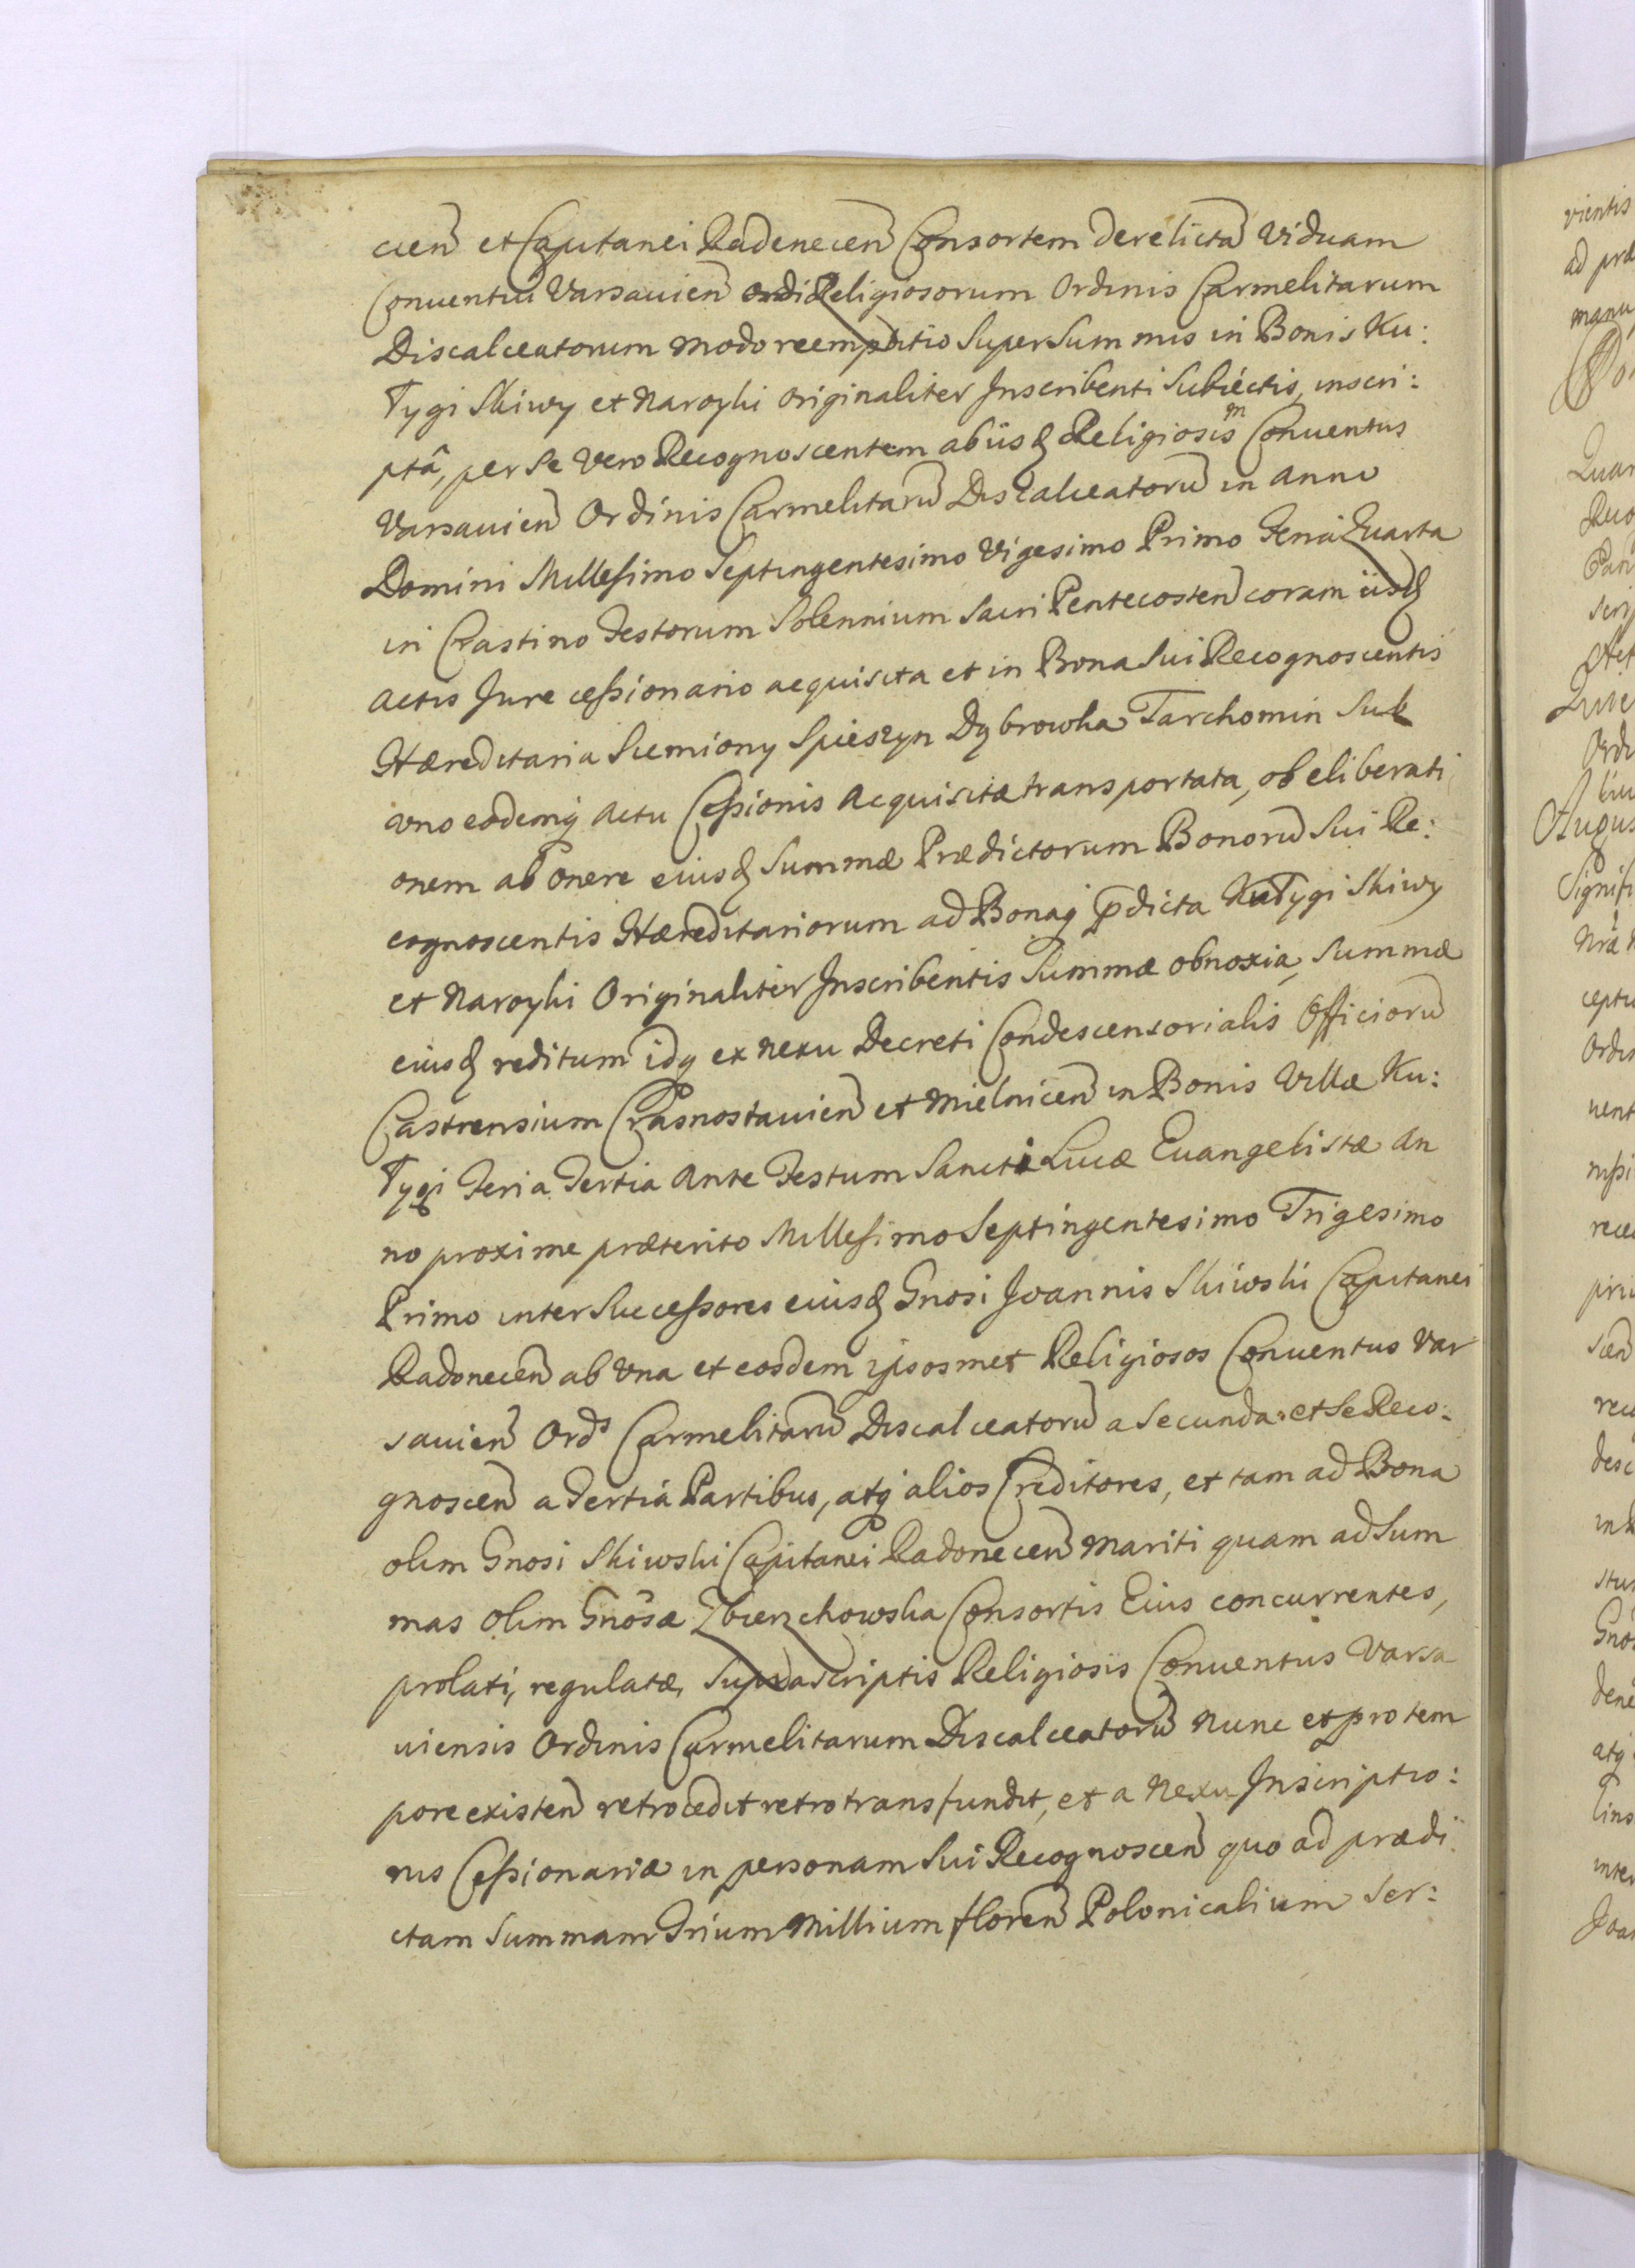 cien̄ et Capitanei Radenecen̄ Consortem derelictā Viduam
Conuentui Varsauien̄ Religiosorum Ordinis Carmelitarum
Discalceatorum modo reemptitio super summis in Bonis Ku:
Tygi Skiwy et Naroyki Originaliter Inscribenti Subiectis, inscri:
ptâ, per se vero Recognoscentem ab iisd Religiosis Conuentus
Varsauien̄ Ordinis Carmelitarū Discalceatorū in Anno
Domini Millesimo Septingentesimo Vigesimo Primo Feria Quarta
in Crastino Festorum Solennium Sacri Pentecosten̄ coram iisd
Actis Jure cessionario acquisita et in Bona sui Recognoscentis
Hæreditaria Siemiony Spieszyn Dąbrowka Tarchomin sub
vno eodemq̨ Actu Cessionis Acquisitæ transportata, ob eliberati
onem ab onere eiusd Summæ Prædictorum Bonorū sui Re:
cognoscentis Hæreditariorum ad Bonaq̨ p̄dicta KuTygi Skiwy
et Naroyki Originaliter Inscribentis Summæ obnoxia, Summæ
eiusd reditum idq̨ ex nexu Decreti Condescensorialis Officiorū
Castrensium Crasnostauien̄ et Mielnicen̄ in Bonis Villæ Ku:
Tygi Feria Tertia Ante Festum Sancti Lucæ Euangelistæ An
no proxime præterito Millesimo Septingentesimo Trigesimo
Primo inter Successores eiusd Gnosi Joannis Skiwski Capitanei
Radonecen̄ ab Vna et eosdem ipsosmet Religiosos Conuentus Var
sauien̄ Ordˢ Carmelitarū Discalceatorū a Secunda et se Reco:
gnoscen̄ a Tertia Partibus, atq̨ alios Creditores, et tam ad Bona
olim Gnosi Skiwski Capitanei Radonecen̄ Mariti quam ad Sum
mas olim Gnōsæ Zbierzchowska Consortis Eius concurrentes,
prolati, regulatæ, suprascriptis Religiosis Conuentus Varsa
uiensis Ordinis Carmelitarum Discalceatorū nunc et pro tem
pore existen̄ retrocedit retrotransfundit, et a Nexu Inscriptio:
nis Cessionariæ in personam sui Recognoscen̄ quo ad prædi
ctam Summam Trium Millium floren̄ Polonicalium ser: